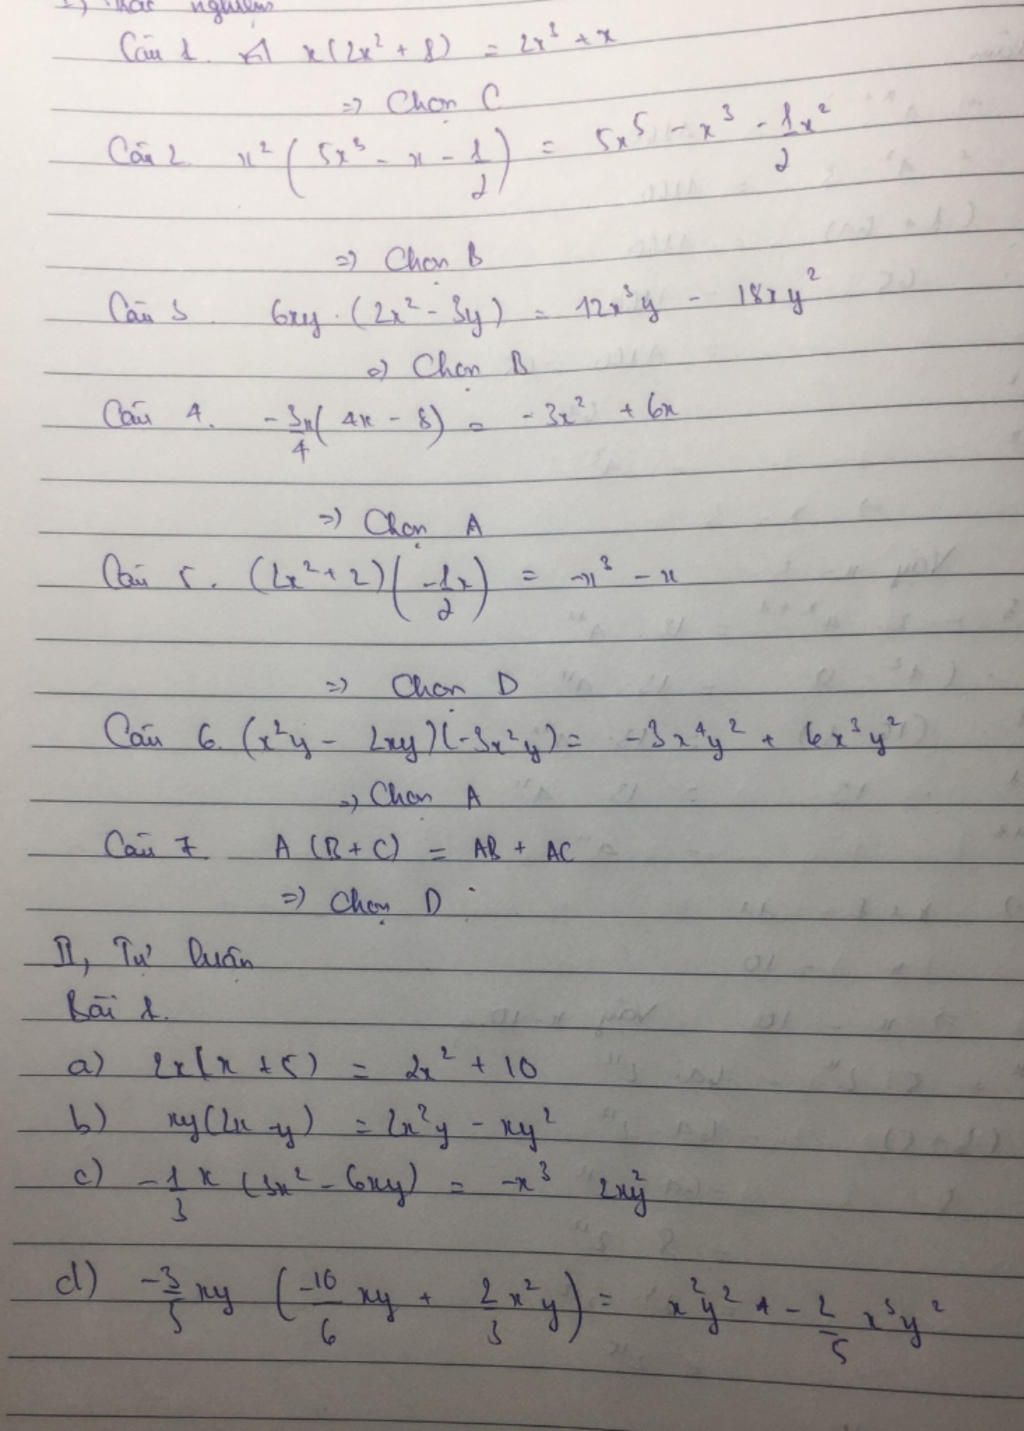 I) Trắc nghiệm
Câu 1. x(2x² + 1) = 2x³ + x
=> Chọn C
Câu 2 x² (5x³ - x - 1/2) = 5x⁵ - x³ - 1/2 x²
=> Chọn B
Câu 3. 6xy . (2x² - 3y) = 12x³y - 18xy²
=> Chọn B
Câu 4. -3/4 x( 4x - 8) = -3x² + 6x
=> Chọn A
Câu 5. (2x² + 2) (-1/2 x) = -x³ - x
=> Chọn D
Câu 6. (x²y - 2xy)(-3x²y) = -3x⁴y² + 6x³y²
=> Chọn A
Câu 7. A (B + C) = AB + AC
=> Chọn D
II, Tự luận
Bài 1.
a) 2x(x + 5) = 2x² + 10
b) xy(2x - y) = 2x²y - xy²
c) -1/3 x (3x² - 6xy) = -x³ 2xy²
d) -3/5 xy (-10/6 xy + 2/3 x²y) = x²y² + -2/5 x³y²